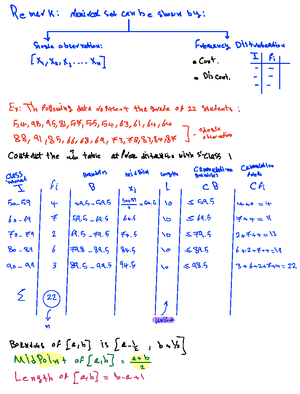 Remark: desired set can be shown by:
Single observation:
[x₁, x₂, x₃ .... xₙ]
Frequency Distribution
• Cont.
• Discont.
I fᵢ
- -
- -
- -
Ex: The following data represent the grade of 22 students:
54, 98, 95, 81, 58, 55, 54, 63, 61, 64, 64
88, 91, 85, 66, 68, 69, 73, 75, 83, 84, 88
single observation
Construct the table with 5 class
class interval I fᵢ B midpoint xᵢ length L cumulative CB cumulative Cfᵢ
50-59 4 49.5-59.5 = 54.5 10 ≤59.5 4+0=4
60-69 7 59.5-69.5 64.5 10 ≤69.5 7+4=11
70-79 2 69.5-79.5 74.5 10 ≤79.5 2+7+4=13
80-89 6 79.5-89.5 84.5 10 ≤89.5 6+2+7+4=19
90-99 3 89.5-99.5 94.5 10 ≤99.5 3+6+2+7+4=22
Σ 22
n
Boundaries of [a,b] is [a-½, b+½]
MidPoint of [a,b] = a+b/2
Length of [a,b] = b-a+1